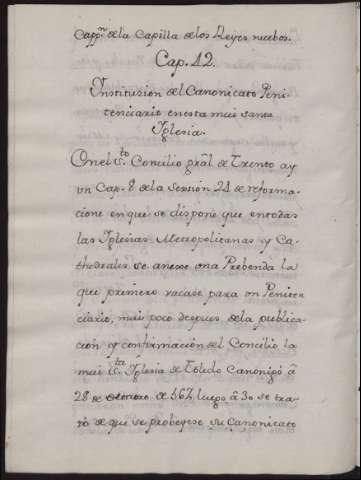 Capp.n de la Capilla de los Reyes nuebos.
Cap. 12.
Institusion del Canonicato Peni-
tenciario en esta mui santa
Iglesia.
On el S.to Concilio gral de Trento ay
vn Cap. 8 de la Session 24 de reforma-
cione en que se dispone que en todas
las Iglesias Metropolitanas y Ca-
thedrales se anexe una Prebenda la
que primero vacase para vn Peniten
ciario, mui poco despues de la publica-
cion y confirmacion del Concilio la
mui S.ta Iglesia de Toledo Canonigó â
28 de de 564 luego â 30 se tra-
tó de que se probeyese su Canonicato